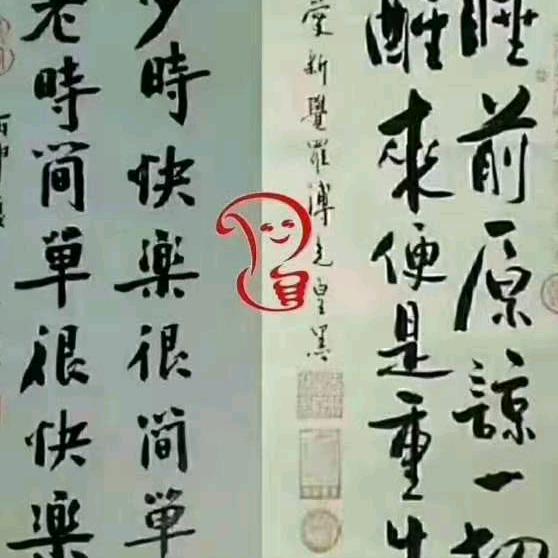 睡前原諒一切
醒來便是重生
堂新覺羅溥之皇墨
少時快樂很簡單
老時簡單很快樂
丙申